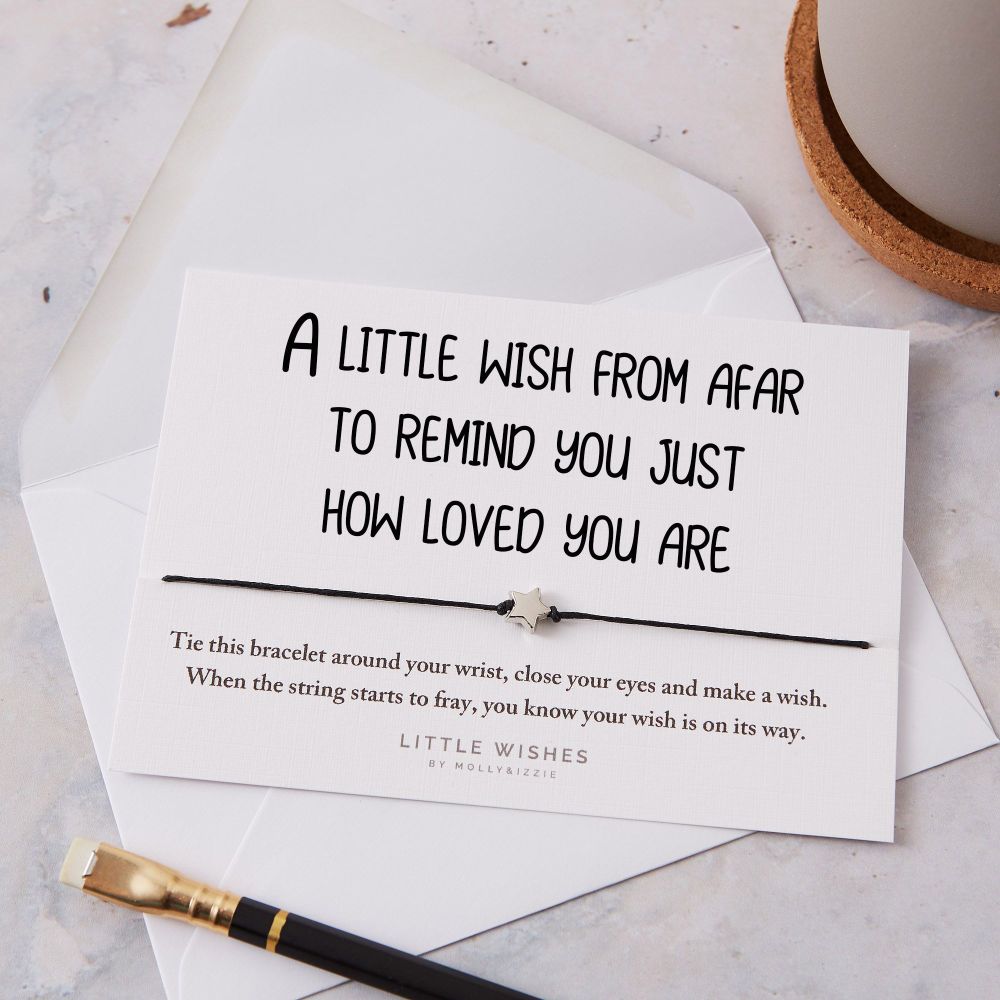 A LITTLE WISH FROM AFAR
TO REMIND YOU JUST
HOW LOVED YOU ARE
Tie this bracelet around your wrist, close your eyes and make a wish.
When the string starts to fray, you know your wish is on its way.
LITTLE WISHES
BY MOLLY&IZZIE